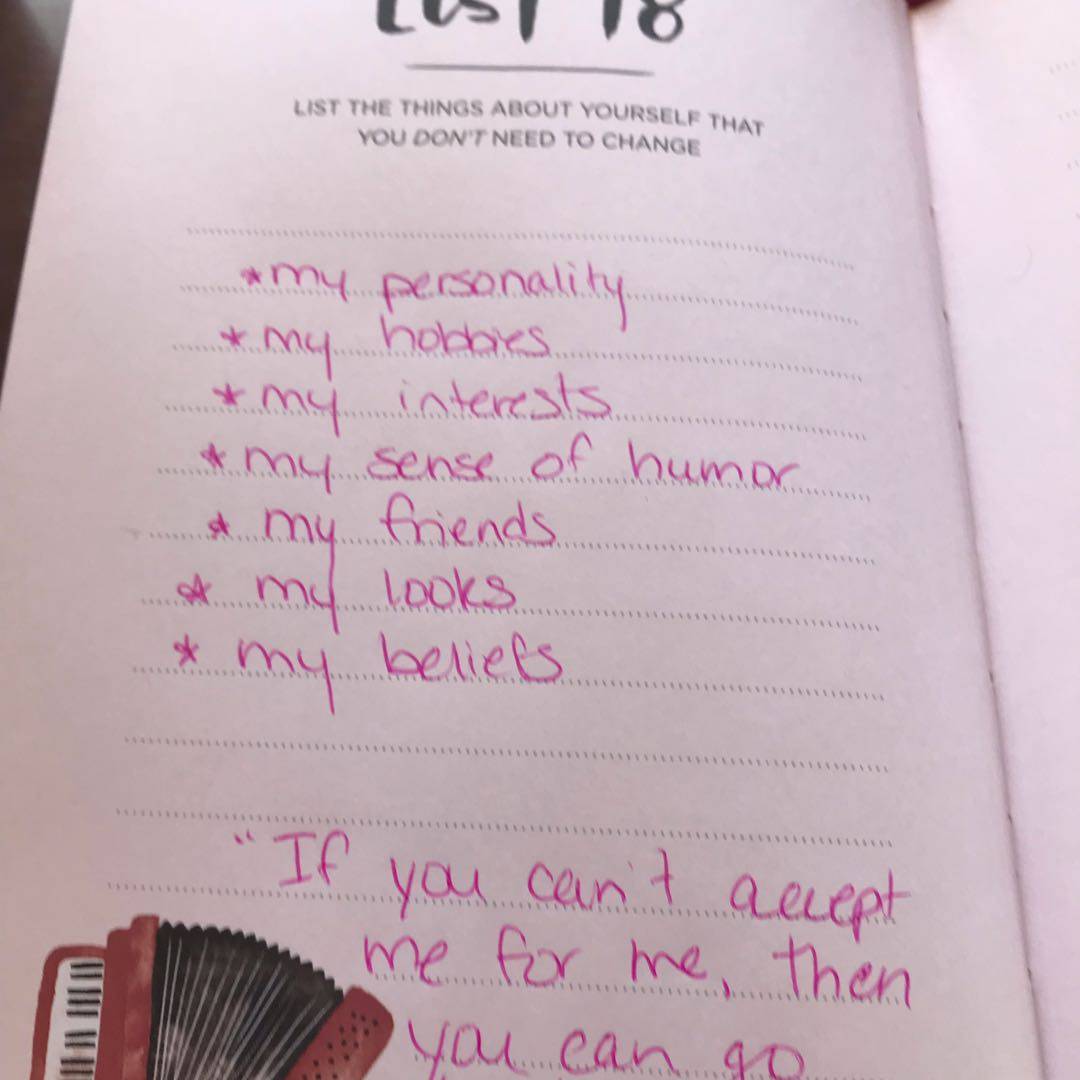 LIST 18
LIST THE THINGS ABOUT YOURSELF THAT
YOU DON'T NEED TO CHANGE
* my personality
* my hobbies
* my interests
* my sense of humor
* my friends
* my looks
* my beliefs
"If you can't accept
me for me, then
you can go